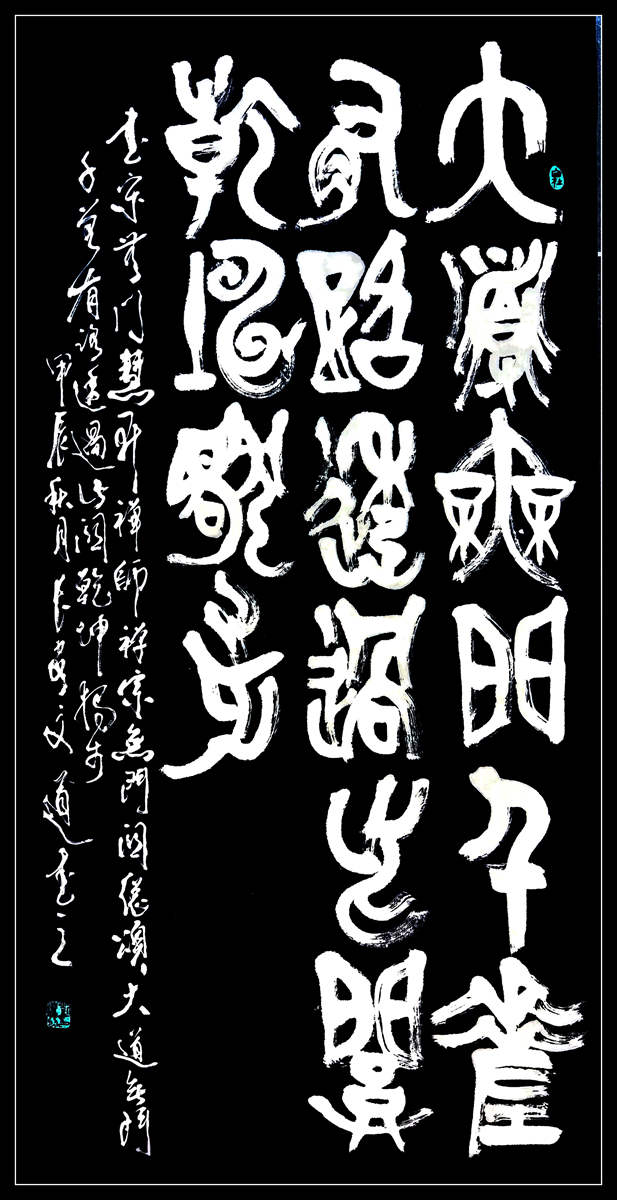 大道無門千差
有路透過此關
乾坤獨步
書宋無門慧開禪師禪宗無門關總頌大道無門
千差有路透過此關乾坤獨步
甲辰秋月文道書之